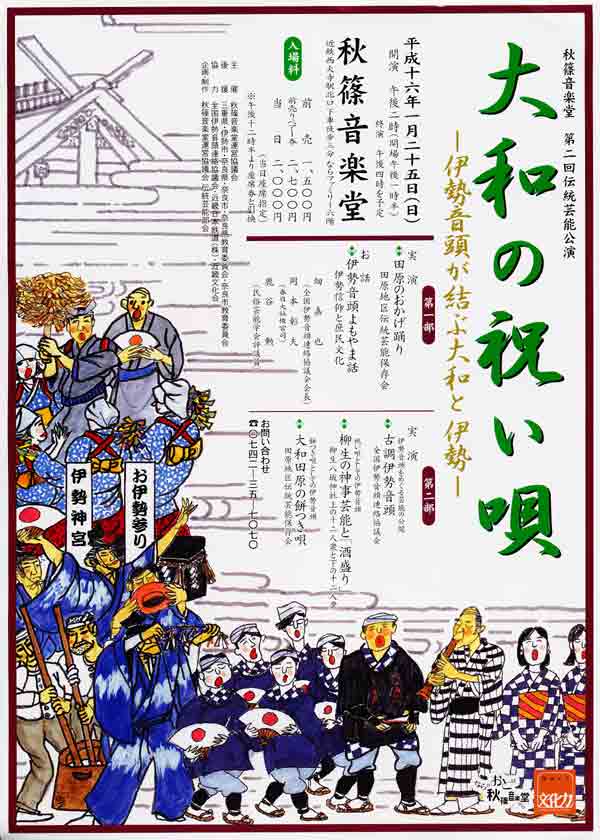 秋篠音楽堂 第二回伝統芸能公演
大和の祝い唄
―伊勢音頭が結ぶ大和と伊勢―
平成十六年一月二十五日(日)
開演 午後二時(開場午後一時半)
終演 午後四時を予定
秋篠音楽堂
近鉄西大寺駅北口下車徒歩三分 ならファミリー六階
入場料
前売 一、五〇〇円
前売りペアー券 二、七〇〇円
当日 二、〇〇〇円
(当日座席指定)
※午後十二時半より座席券と引換
主催 秋篠音楽堂運営協議会
後援 三重県・伊勢市・奈良県・奈良市・奈良県教育委員会・奈良市教育委員会
協力 全国伊勢音頭連絡協議会・近畿日本鉄道(株)・近畿文化会
企画・制作 秋篠音楽堂運営協議会 伝統芸能部会
第一部
実演
田原のおかげ踊り
田原地区伝統芸能保存会
お話
伊勢音頭よもやま話
伊勢信仰と庶民文化
畑嘉也
(全国伊勢音頭連絡協議会会長)
岡本彰夫
(春日大社権宮司)
鹿谷勲
(民俗芸能学会評議員)
第二部
実演
伊勢音頭をめぐる芸能の公開
古調伊勢音頭
全国伊勢音頭連絡協議会
祝い唄としての伊勢音頭
柳生の神事芸能と「酒盛り」
柳生八坂神社上の十二八衆と下の十二八夕
餅つき唄としての伊勢音頭
大和田原の餅つき唄
田原地区伝統芸能保存会
お問い合わせ
☎〇七四二―三五―七〇七〇
お伊勢参り
伊勢神宮
秋篠音楽堂
文化力